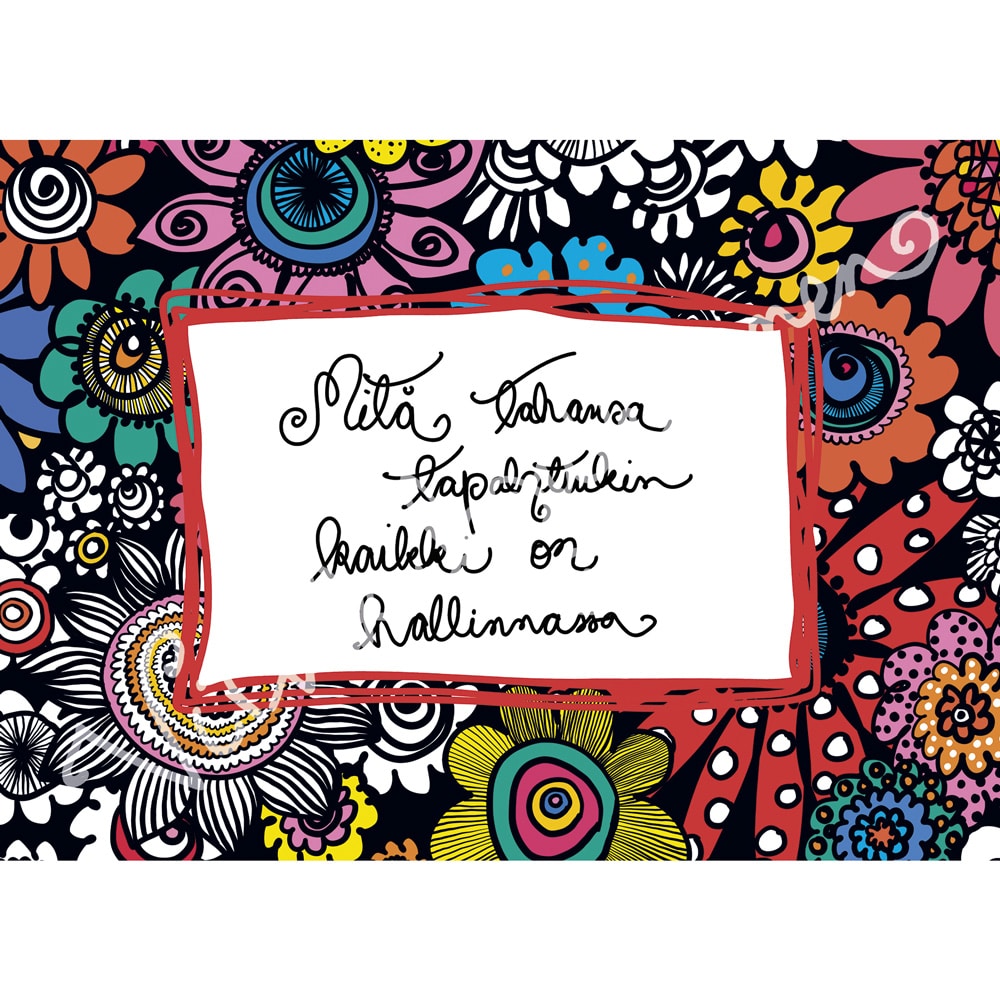 Mitä tahansa
tapahtuukin
kaikki on
hallinnassa